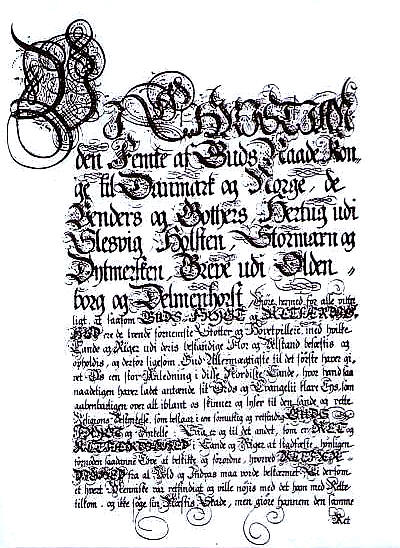 VI CHRISTIAN
den Femte af Guds Naade Kon-
ge til Danmark og Norge, de
Venders og Gothers, Hertug udi
Slesvig, Holsten, Stormarn og
Dytmersken, Greve udi Olden-
borg og Delmenhorst, Giøre hermed for alle vitter-
ligt, at saasom GUDS-FRYGT og RETFÆRDIG-
HED ere de tvende fornemste Støtter og Hovetpillere, med hvilke
Lande og Riger udi deris bestandige Flor og Velstand befæstis og
opholdis, og derfor ligesom Gud Allermægtigste til det første haver gi-
vet Os een stor Anledning i disse Nordiske Lande, hvor hand saa
naadeligen haver ladet antænde sit Ords og Evangelii klare Lys, som
aabenbarligen over alt iblant os skinner og lyser til den sande og rette
Religions Bekiendelse, som bestaar i een oprigtig og retsindig GUDS
FRYGT og til det andet, som er RET og
RETFÆRDIGHED i Lande og Riger at stadfæste, høyligen
fornøden saadanne Love at beskikke og forordne, hvorved RETFÆR-
DIGHED fra al Vold og Indpas maa vorde beskærmet, saa derfom
et hvert Menniske var retsindigt og ville nøjis med det ham med Rette
tilkom, og ikke søge sin Næstis Skade, men giøre hannem den samme
Ret